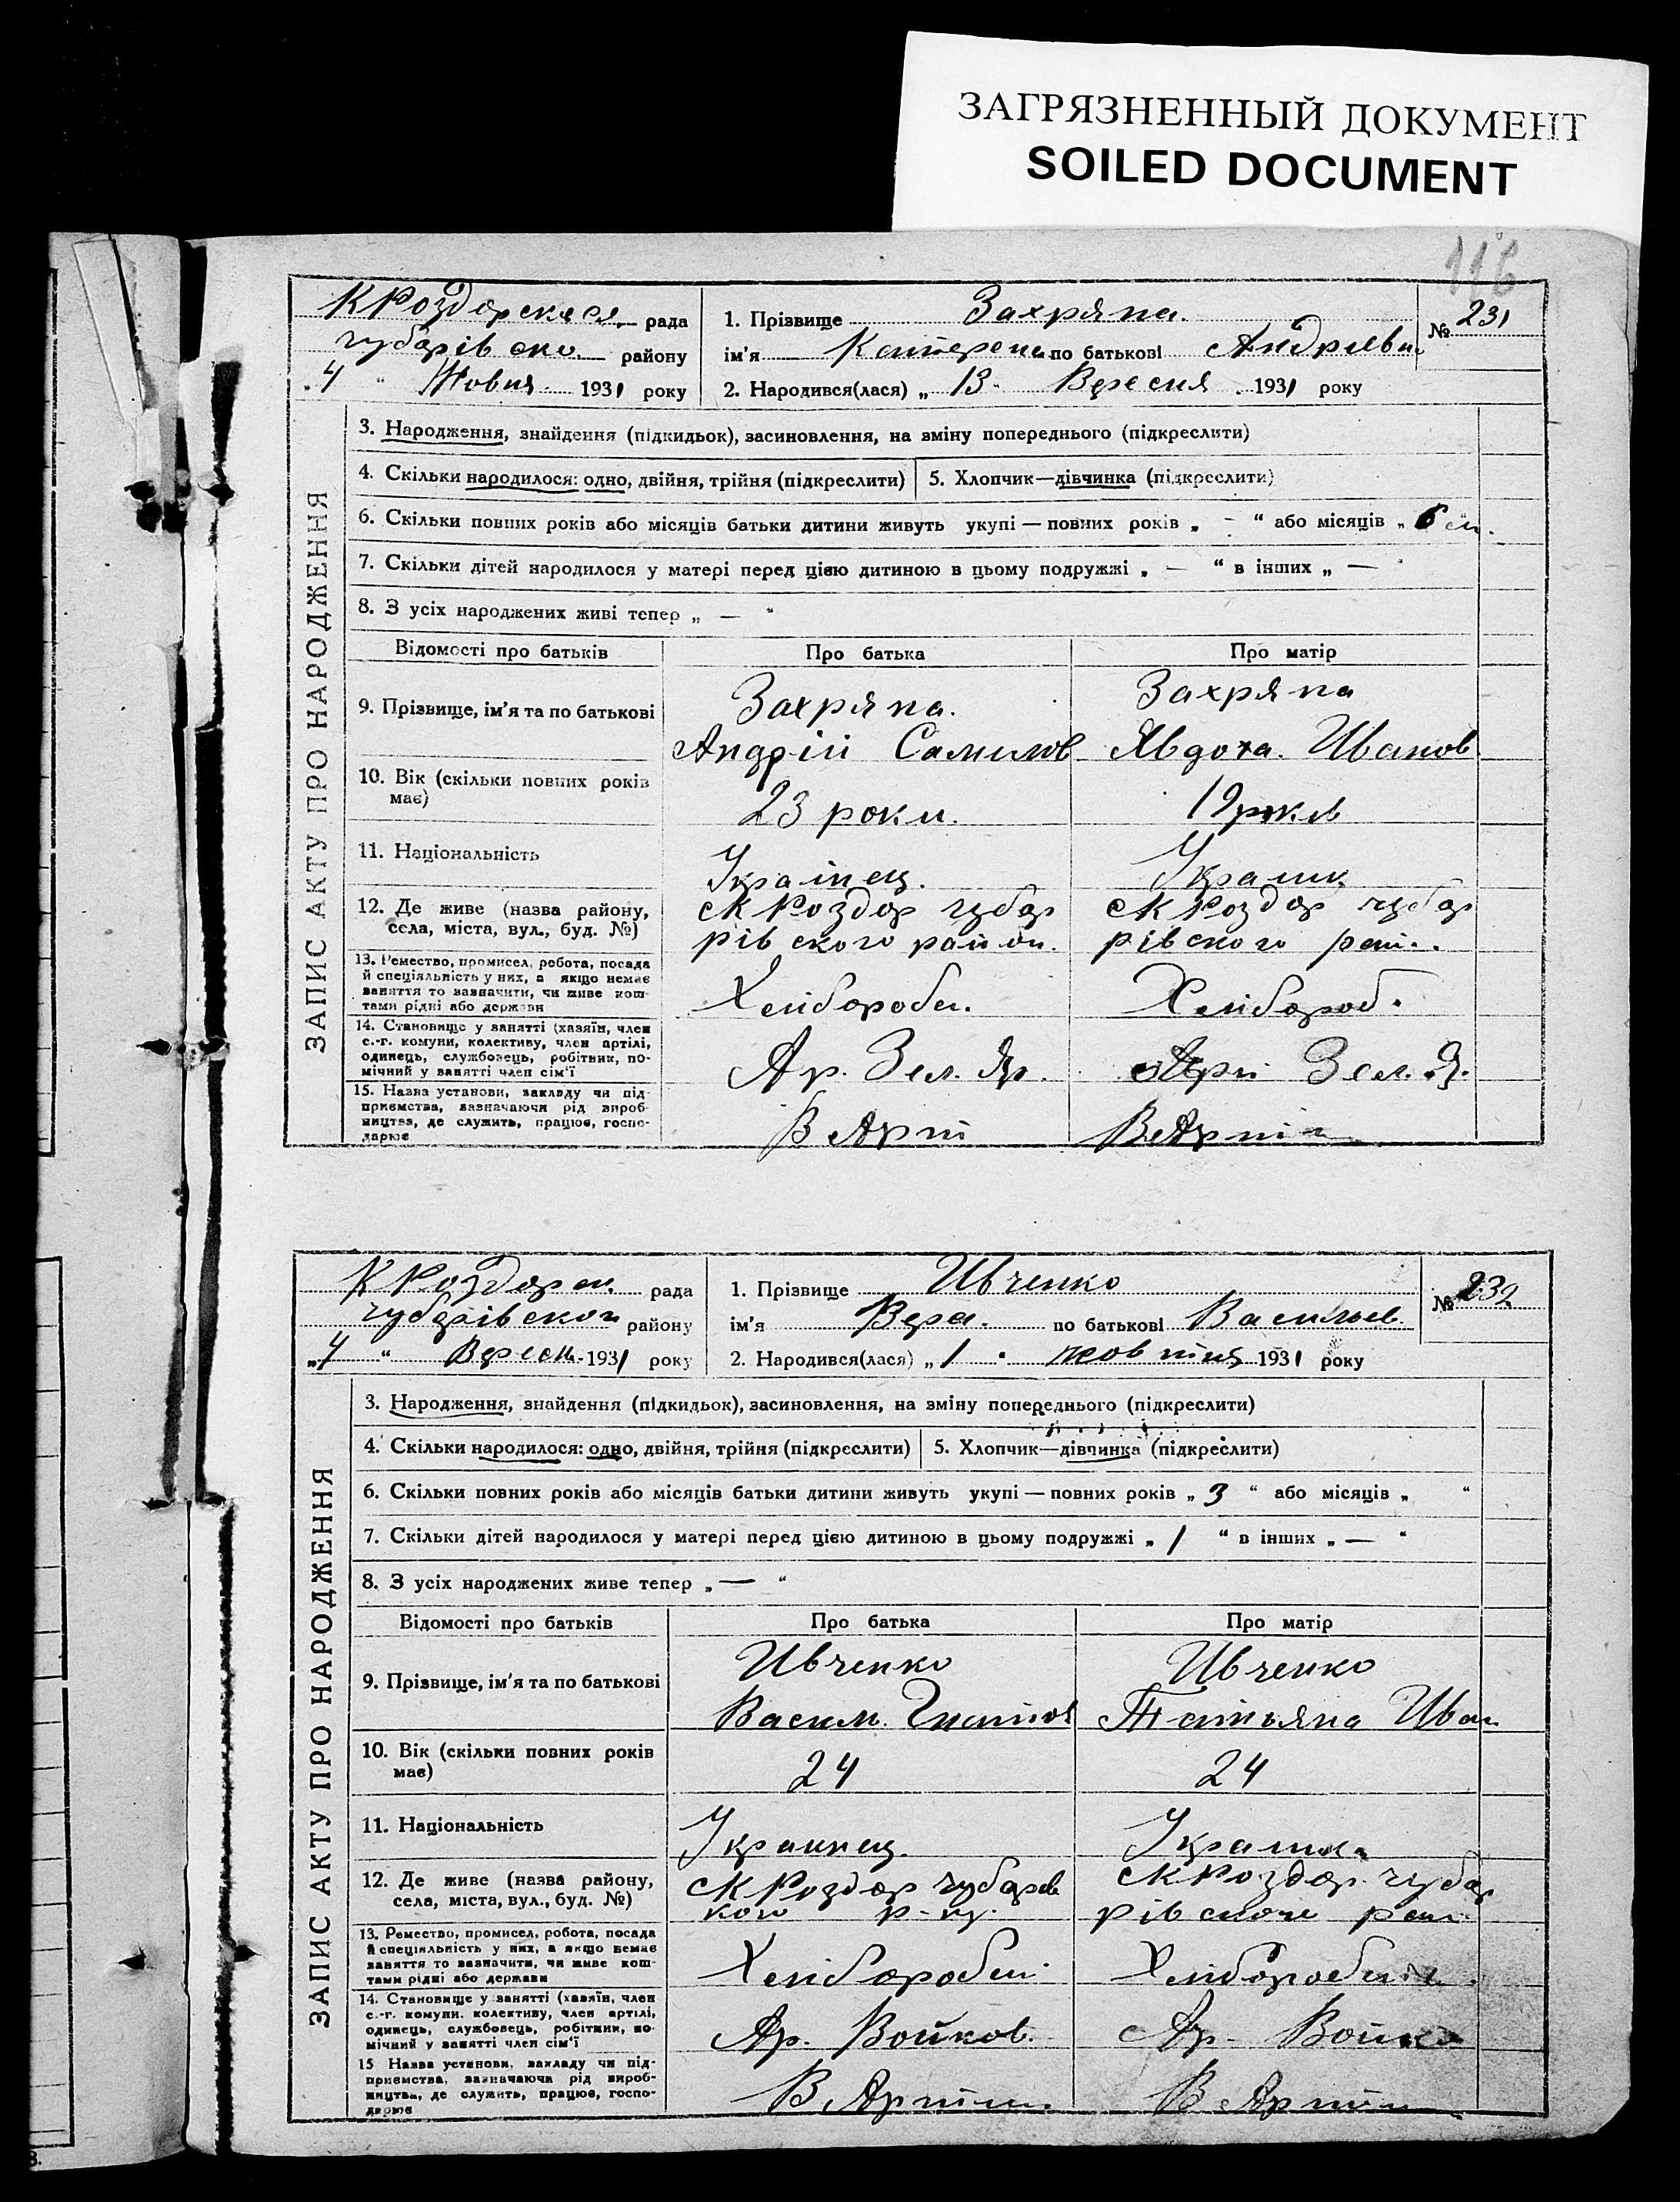 ЗАГРЯЗНЕННЫЙ ДОКУМЕНТ
SOILED DOCUMENT
116
рада
району
4 “ Жовтня 1931 року
1. Прізвище Захряпа.
ім’я Катерена по батькові Андріевна
2. Народився(лася) „ 13 Вересня 1931 року
№ 231
ЗАПИС АКТУ ПРО НАРОДЖЕННЯ
3. Народження, знайдення (підкидьок), засиновлення, на зміну попереднього (підкреслити)
4. Скільки народилося: одно, двійня, трійня (підкреслити)
5. Хлопчик—дівчинка (підкреслити)
6. Скільки повних років або місяців батьки дитини живуть укупі — повних років „ - “ або місяців „ 6 м.
7. Скільки дітей народилося у матері перед цією дитиною в цьому подружжі „ — “ в інших „ —
8. З усіх народжених живі тепер „ — “
Відомості про батьків Про батька Про матір
9. Прізвище, ім’я та по батькові
Захряпа. Захряпа
Андрій Самилов Явдоха. Иванов
10. Вік (скільки повних років має)
23 роки. 19 років
11. Національність
Українец. Украінк
12. Де живе (назва району, села, міста, вул., буд. №)
с К Роздор чубар с К Роздор чубар
рівского район. рівского рай.
13. Ремество, промисел, робота, посада
й спеціяльність у них, а якщо немає
заняття то зазначити, чи живе кош-
тами рідні або держави
Хліборобы. Хлібороб.
14. Становище у занятті (хазяїн, член
с.-г. комуни, колективу, член артілі,
одинець, службовець, робітник, по-
мічний у занятті член сім’ї
Ар. Зел. Яр. Арт Зел. Я.
15. Назва установи, закладу чи під-
приємства, зазначаючи рід вироб-
ництва, де служить, працює, госпо-
дарює
В Арт В Арті
К Роздорск. рада
чубарівског району
„ 4 “ Вересн. 1931 року
1. Прізвище Ивченко
ім’я Вера. по батькові Васильев.
2. Народився(лася) „ 1 жовтня 1931 року
№ 232
ЗАПИС АКТУ ПРО НАРОДЖЕННЯ
3. Народження, знайдення (підкидьок), засиновлення, на зміну попереднього (підкреслити)
4. Скільки народилося: одно, двійня, трійня (підкреслити)
5. Хлопчик—дівчинка (підкреслити)
6. Скільки повних років або місяців батьки дитини живуть укупі — повних років „ 3 “ або місяців „ “
7. Скільки дітей народилося у матері перед цією дитиною в цьому подружжі „ 1 “ в інших „ — “
8. З усіх народжених живе тепер „ — “
Відомості про батьків Про батька Про матір
9. Прізвище, ім’я та по батькові
Ивченко Ивченко
Васил. Игнатов Татьяна Иван
10. Вік (скільки повних років має)
24 24
11. Національність
Украинец. Украинк
12. Де живе (назва району, села, міста, вул., буд. №)
с К Роздор чубарів с К Роздор. чубар
кого р-ну. рівского рай.
13. Ремество, промисел, робота, посада
й спеціяльність у них, а якщо немає
заняття то зазначити, чи живе кош-
тами рідні або держави
Хлібороби Хлібороби
14. Становище у занятті (хазяїн, член
с.-г. комуни, колективу, член артілі,
одинець, службовець, робітник, по-
мічний у занятті член сім’ї
Ар. Войков. Ар. Войко
15 Назва установи, закладу чи під-
приємства, зазначаючи рід вироб-
ництва, де служить, працює, госпо-
дарює
В Артіли В Артіли